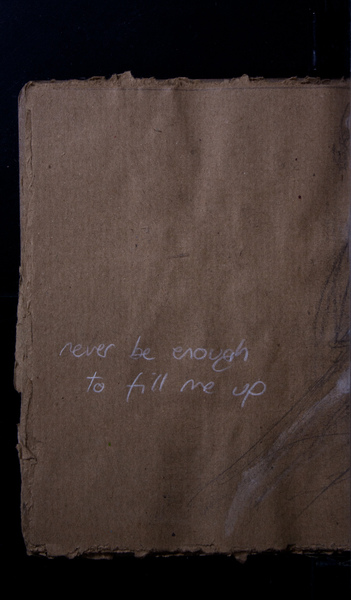 never be enough
to fill me up